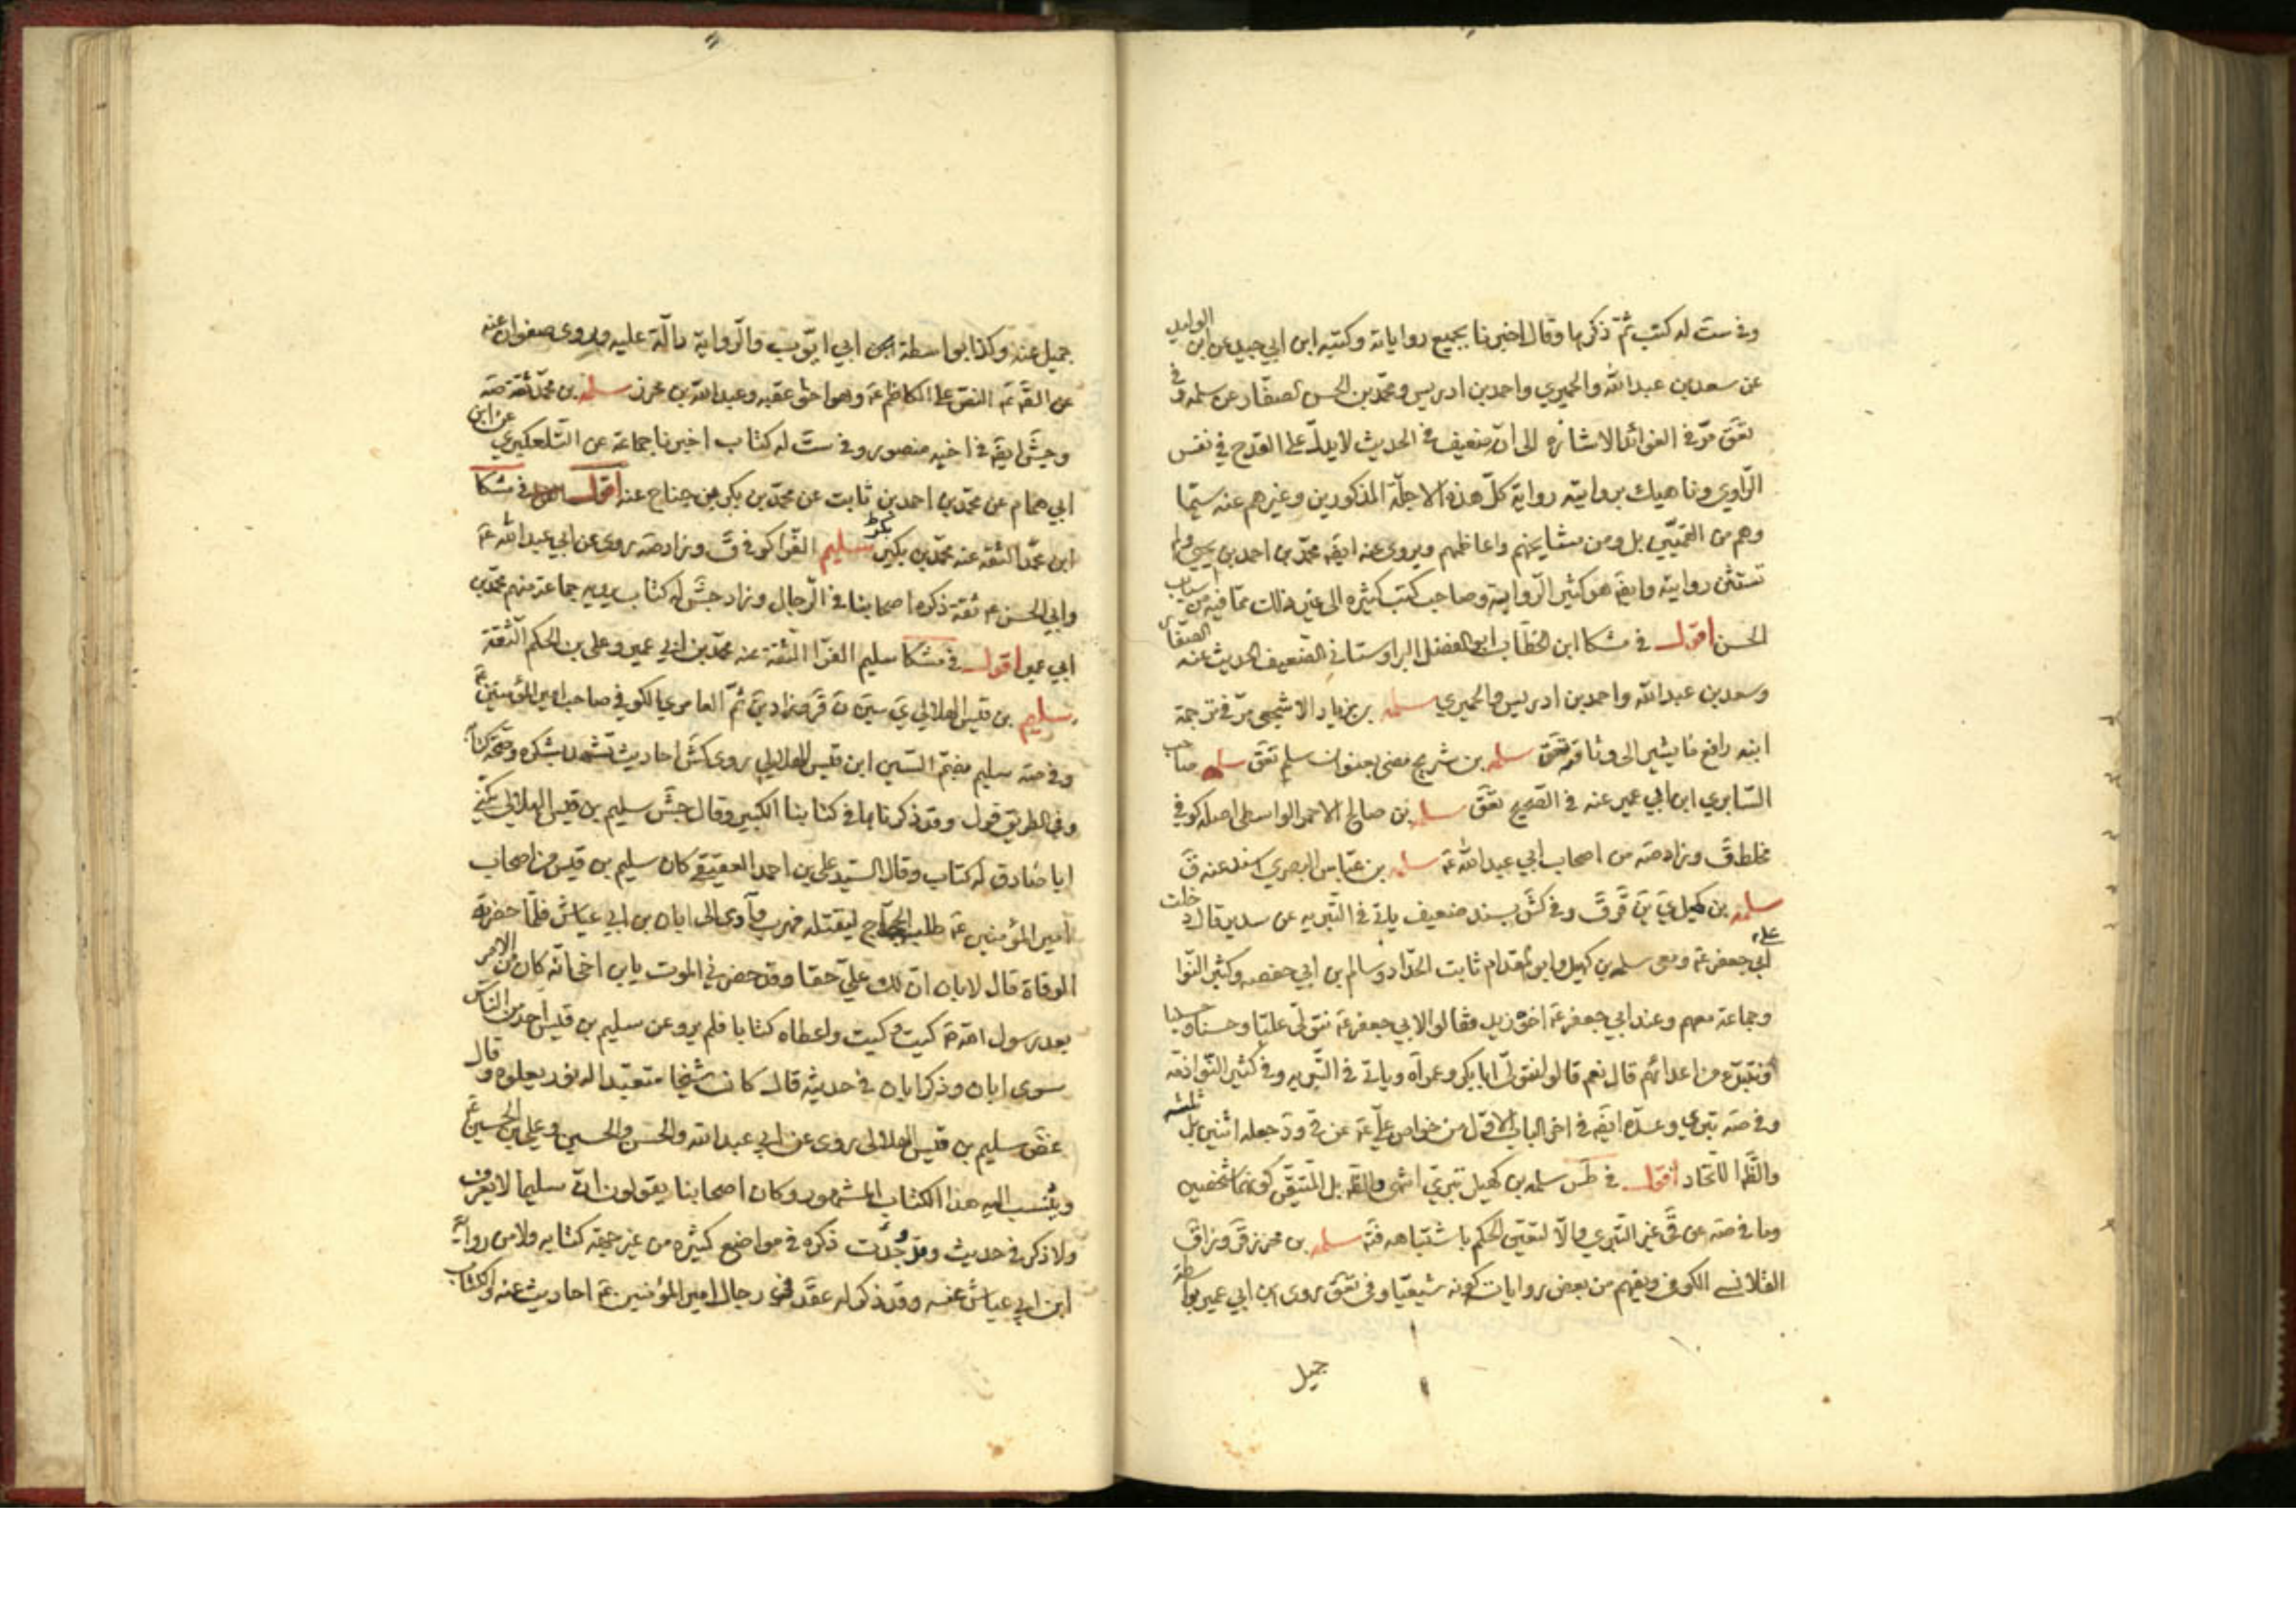 وفي ست له كتب ثم ذكرها وقال اخبرنا بجميع رواياته وكتبه ابن ابي جيد عن ابن الوليد
عن سعد بن عبد الله والحميري واحمد بن ادريس ومحمد بن الحسن الصفار عن سلمة وفي
تعق مر في الفوائد الاشارة الى ان ضعيف في الحديث لا يدل على القدح في نفس
الراوي وناهيك بروايته رواية كل هذه الاجلة المذكورين وغيرهم عنه سيما
وهم من القميين بل ومن مشايخهم واعاظمهم ويروى عنه ايضه محمد بن احمد بن يحيى ولم
تستثن روايته وايضه هو كثير الرواية وصاحب كتب كثيرة الى غير ذلك مما فيه من اسباب
الحسن اقول في مشكا ابن الخطاب ابو الفضل البراوستاني الضعيف الحديث عنه الصفار
وسعد بن عبد الله واحمد بن ادريس والحميري سلمه بن زياد الاشجعي مر في ترجمة
ابنه رافع ما يشير الى وثاقته تعق سلمه بن شريح مضى بعنوان سلم تعق سلمه صاحب
السابري ابن ابي عمير عنه في الصحيح تعق سلمه بن صالح الاحمر الواسطي اصله كوفي
مخلط ق وزاد صه من اصحاب ابي عبد الله عم سلمه بن عياش البصري اسند عنه ق
سلمه بن كهيل ي ين قر ق وفي كش بسند ضعيف ياتي في البتريه عن سدير قال دخلت
على ابي جعفر عم ومعي سلمه بن كهيل وابو المقدام ثابت الحداد وسالم بن ابي حفصه وكثير النوا
وجماعة معهم وعند ابي جعفر عم اخوه زيد فقالوا لابي جعفر عم نتولى عليا وحسنا وحسينا
ونتبرء من اعدائهم قال نعم قالوا نتولى ابا بكر وعمر اه وياتي في البتريه وفي كثير النوا ذمه
وفي صه بتري وعده ايضه في اخر الباب الاول من خواص علي عم عن قي ود جعله اثنين بل ثلثه
والظه الاتحاد اقول في طس سلمه بن كهيل بتري انتهى والظه بل المتيقن كونهما شخصين
وما في صه عن قي غير البتري والا لتعين الحكم باشتباهه فته سلمه بن محرز قر وزاد ق
القلانسي الكوفي ويفهم من بعض روايات كونه شيعيا وفي تعق روى ابن ابي عمير بواسطة
جميل
جميل عنه وكذا بواسطة ابي ايوب والرواية دالة عليه ويروى صفوان عنه
عن الصه عم النص على الكاظم عم وهو اخو عقبه وعبد الله بن محرز سلمه بن محمد ثقة صه
وجش ايضه في اخيه منصور وفي ست له كتاب اخبرنا جماعة عن التلعكبري عن ابن
ابي همام عن محمد بن احمد بن ثابت عن محمد بن بكر بن جناح عنه اقول في مشكا
ابن محمد الثقة عنه محمد بن بكير بكر سليم الفرا كوفي ق وزاد صه روى عن ابي عبد الله عم
وابي الحسن عم ثقة ذكره اصحابنا في الرجال وزاد جش له كتاب يرويه جماعة منهم محمد بن
ابي عمير اقول في مشكا سليم الفرا الثقة عنه محمد بن ابي عمير وعلي بن الحكم الثقة
سليم بن قيس الهلالي ي سين ن قر وزاد ين ثم العامري الكوفي صاحب امير المؤمنين عم
وفي صه سليم مضم السين ابن قيس الهلالي روى كش احاديث تشهد بشكره وصحة كتابه
وفي الطريق قول وقد ذكرناها في كتابنا الكبير وقال جش سليم بن قيس الهلالي يكنى
ابا صادق له كتاب وقال السيد علي بن احمد العقيقي كان سليم بن قيس من اصحاب
امير المؤمنين عم طلبه الحجاج ليقتله فهرب وآوى الى ابان بن ابي عياش فلما حضرته
الوفاة قال لابان ان لك علي حقا وقد حضرني الموت يا بن اخي انه كان من الامر
بعد رسول الله ص كيت وكيت واعطاه كتابا فلم يرو عن سليم بن قيس احد من الناس
سوى ابان وذكر ابان في حديثه قال كان شيخا متعبدا له نور يعلوه وقال
غض سليم بن قيس الهلالى روى عن ابي عبد الله والحسن والحسين وعلي بن الحسين عم
وينسب اليه هذا الكتاب المشهور وكان اصحابنا يقولون ان سليما لا يعرف
ولا ذكر في حديث وقد وجدت ذكره في مواضع كثيره من غير جهة كتابه ولا من رواية
ابن ابي عياش عنه وقد ذكر له عقد في رجال امير المؤمنين عم احاديث عنه والكتاب